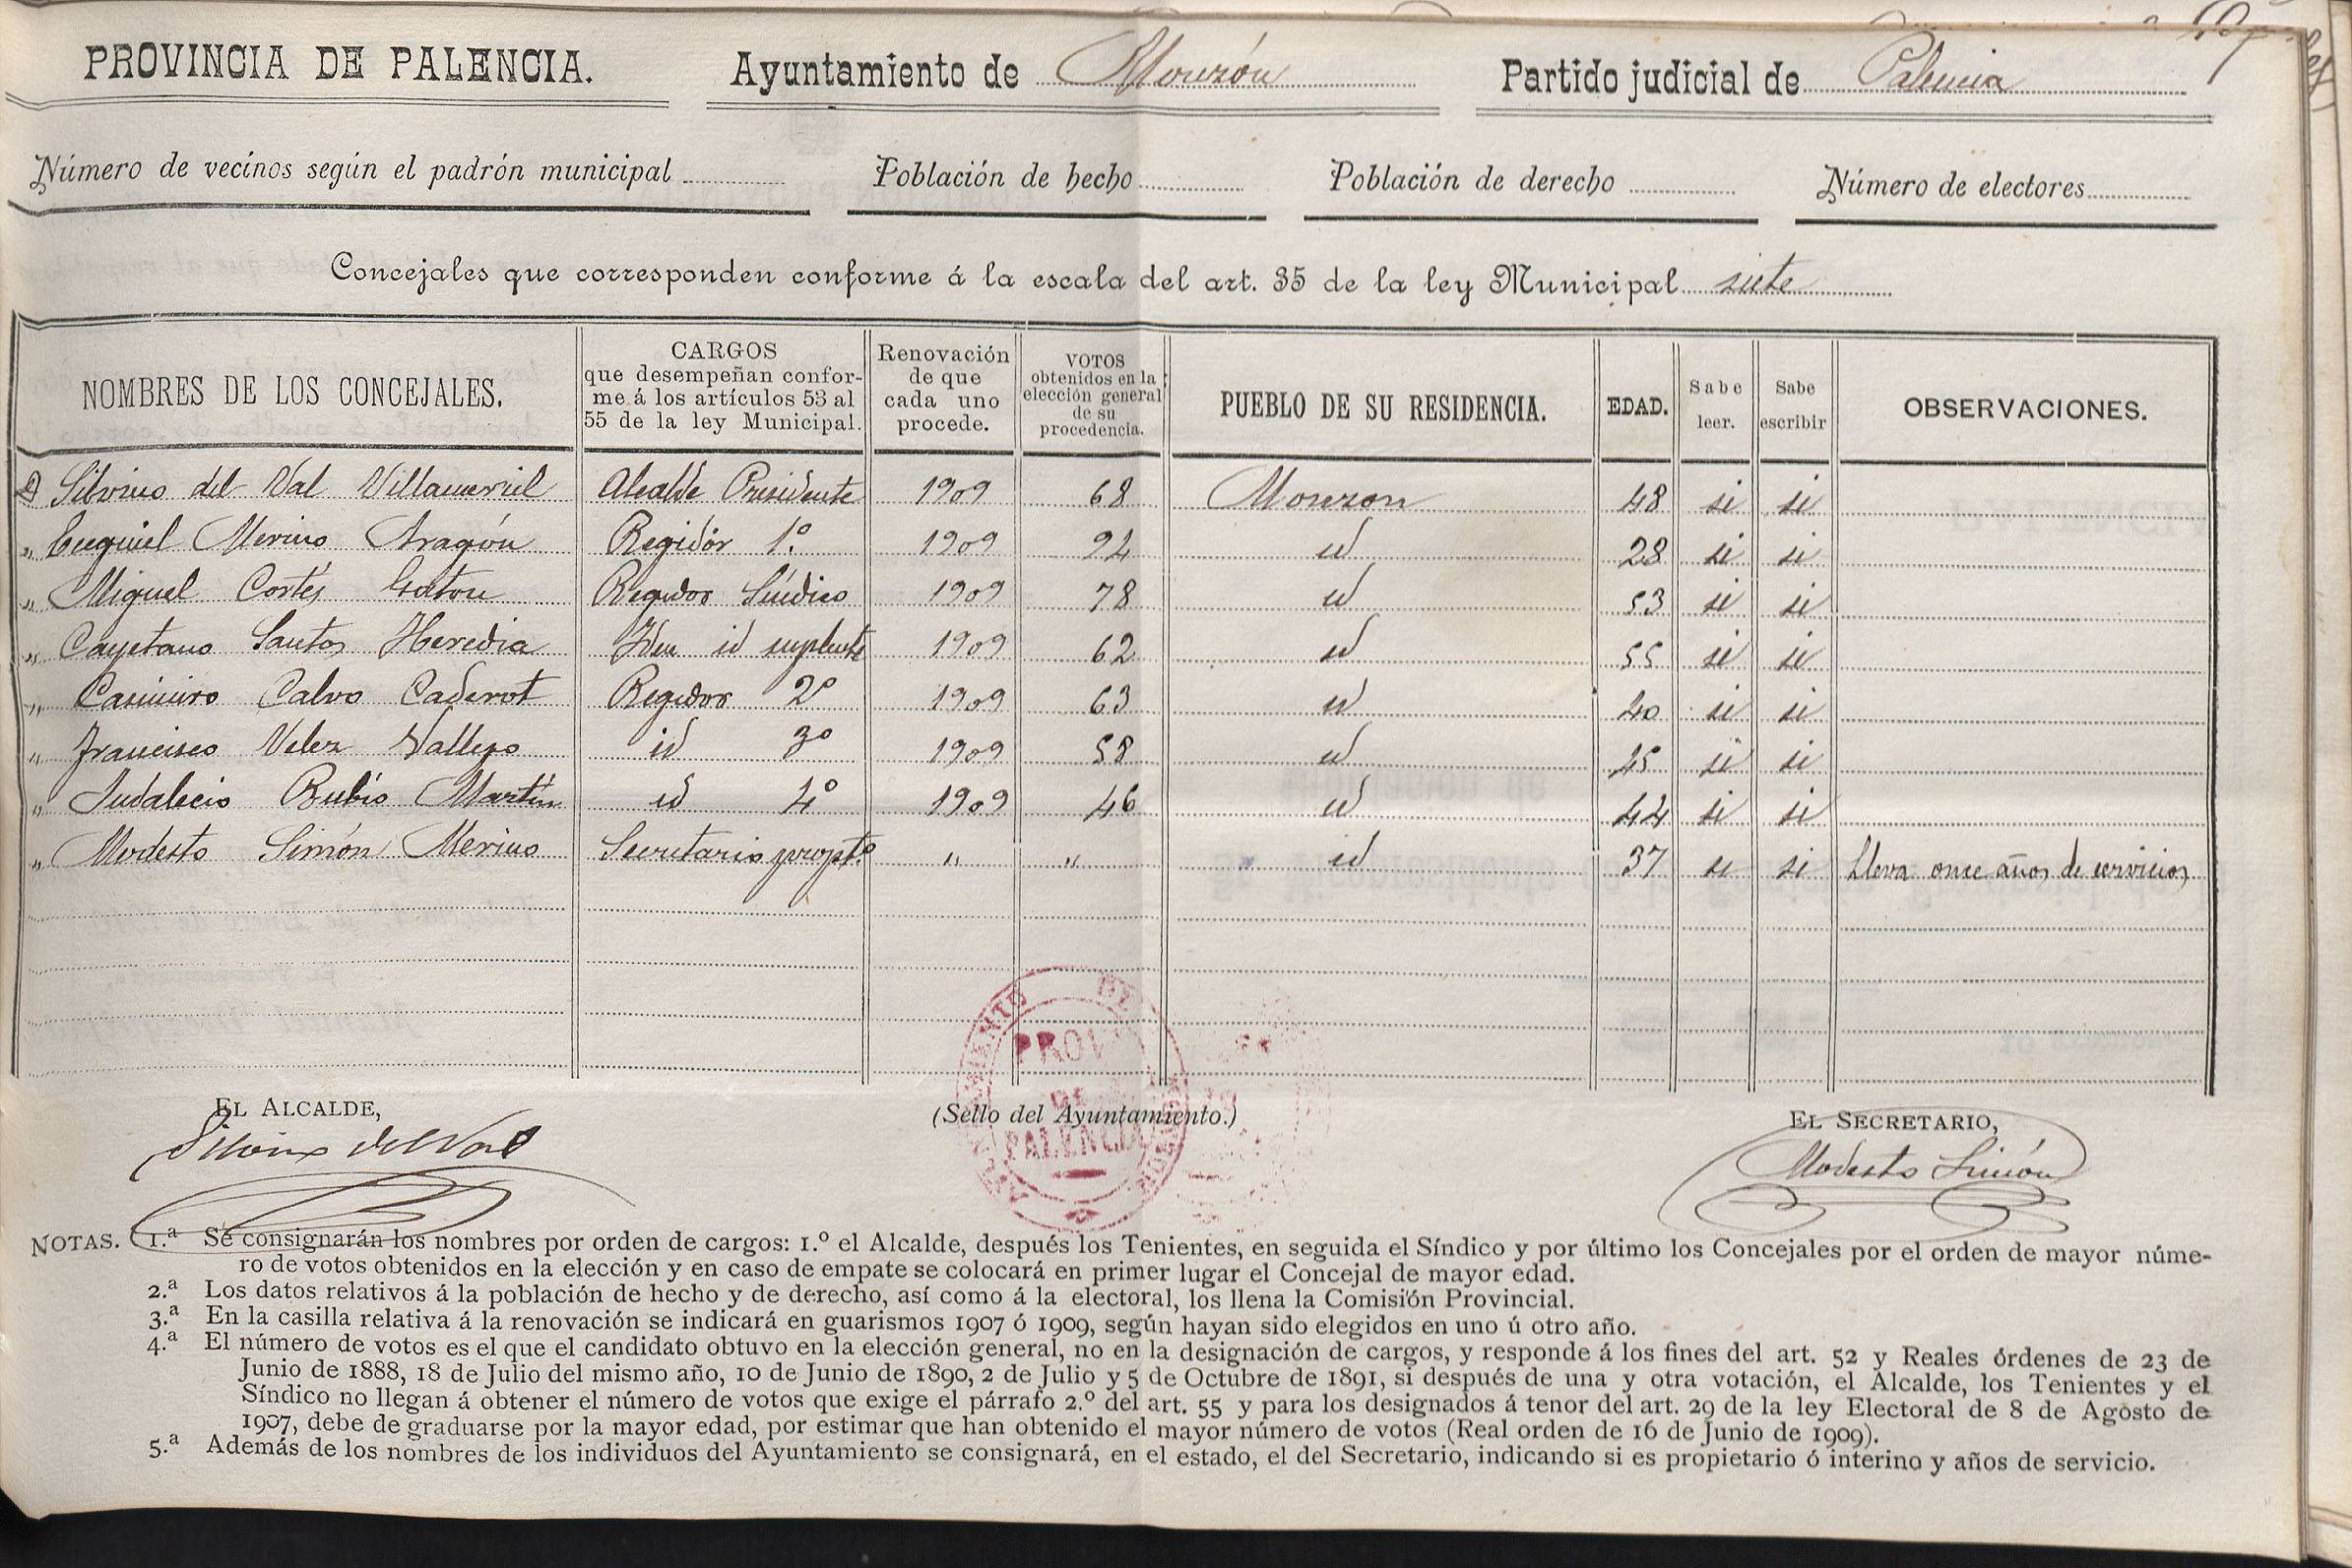 PROVINCIA DE PALENCIA. Ayuntamiento de Monzón Partido judicial de Palencia
Número de vecinos según el padrón municipal Población de hecho Población de derecho Número de electores
Concejales que corresponden conforme á la escala del art. 35 de la ley Municipal siete
NOMBRES DE LOS CONCEJALES.
CARGOS
que desempeñan confor-
me á los artículos 53 al
55 de la ley Municipal.
Renovación
de que
cada uno
procede.
VOTOS
obtenidos en la
elección general
de su
procedencia.
PUEBLO DE SU RESIDENCIA.
EDAD.
Sabe
leer.
Sabe
escribir
OBSERVACIONES.
D Silvino del Val Villameriel Alcalde Presidente 1909 68 Monzon 48 si si
" Ezequiel Merino Aragón Regidor 1.º 1909 92 id 28 si si
" Miguel Cortés Gatón Regidor Síndico 1909 78 id 53 si si
" Cayetano Santos Heredia Idem id suplente 1909 62 id 55 si si
" Casimiro Calvo Caderot Regidor 2º 1909 63 id 40 si si
" Francisco Velez Vallejo id 3º 1909 58 id 45 si si
" Indalecio Rubio Martín id 4º 1909 46 id 44 si si
" Modesto Simón Merino Secretario propt.º " " id 37 si si Lleva once años de servicios
EL ALCALDE,
Silvino del Val
(Sello del Ayuntamiento.)
AYUNTAMIENTO DE
PROV.
DE
PALENCIA
EL SECRETARIO,
Modesto Simón
NOTAS. 1.ª Se consignarán los nombres por orden de cargos: 1.º el Alcalde, después los Tenientes, en seguida el Síndico y por último los Concejales por el orden de mayor núme-
ro de votos obtenidos en la elección y en caso de empate se colocará en primer lugar el Concejal de mayor edad.
2.ª Los datos relativos á la población de hecho y de derecho, así como á la electoral, los llena la Comisión Provincial.
3.ª En la casilla relativa á la renovación se indicará en guarismos 1907 ó 1909, según hayan sido elegidos en uno ú otro año.
4.ª El número de votos es el que el candidato obtuvo en la elección general, no en la designación de cargos, y responde á los fines del art. 52 y Reales órdenes de 23 de
Junio de 1888, 18 de Julio del mismo año, 10 de Junio de 1890, 2 de Julio y 5 de Octubre de 1891, si después de una y otra votación, el Alcalde, los Tenientes y el
Síndico no llegan á obtener el número de votos que exige el párrafo 2.º del art. 55 y para los designados á tenor del art. 29 de la ley Electoral de 8 de Agosto de
1907, debe de graduarse por la mayor edad, por estimar que han obtenido el mayor número de votos (Real orden de 16 de Junio de 1909).
5.ª Además de los nombres de los individuos del Ayuntamiento se consignará, en el estado, el del Secretario, indicando si es propietario ó interino y años de servicio.